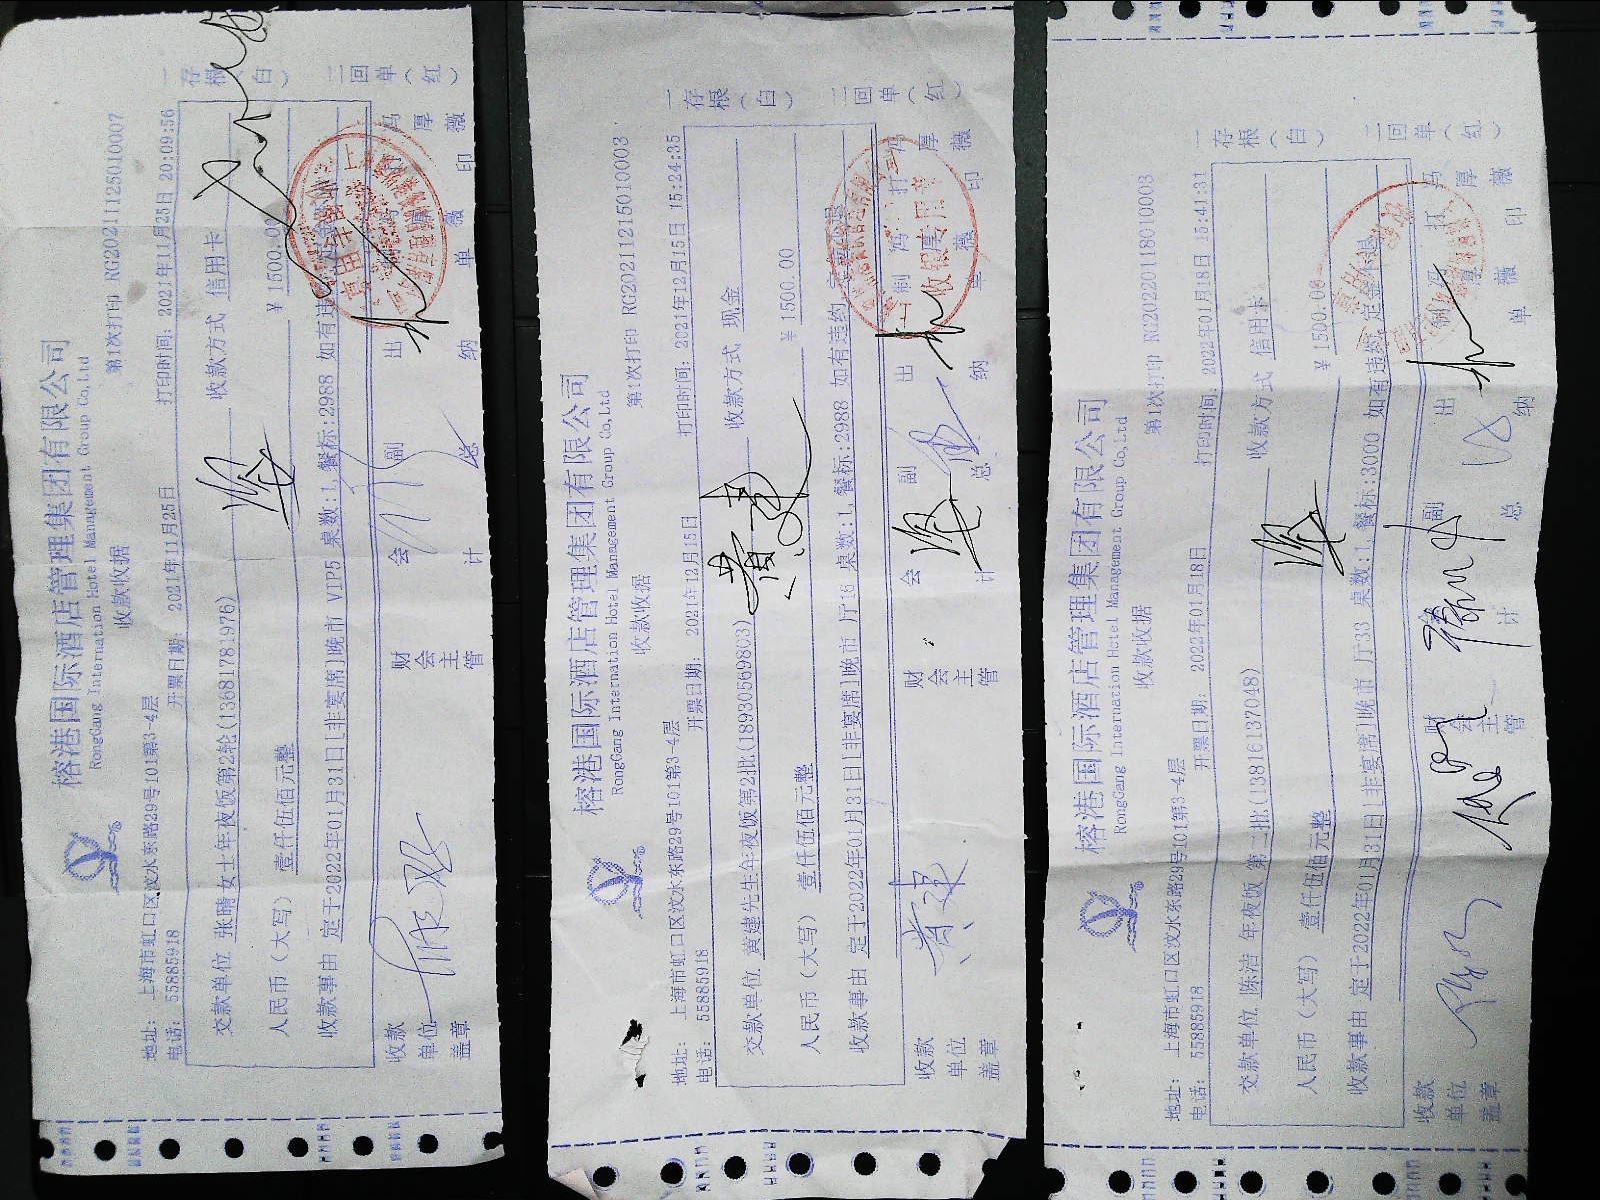 榕港国际酒店管理集团有限公司
RongGang International Hotel Management Group Co,Ltd
收款收据
第1次打印 RG20211125010007
地址: 上海市虹口区汶水东路29号101第3-4层
电话: 55885918
开票日期: 2021年11月25日
打印时间: 2021年11月25日 20:09:56
交款单位 张晴女士年夜饭第2轮(13681781976)
收款方式 信用卡
人民币（大写） 壹仟伍佰元整
¥ 1500.00
收款事由 定于2022年01月31日[非宴席]晚市 VIP5 桌数:1,餐标:2988 如有违约
收款单位盖章
财会主管
会计
副总
出纳
制单
冯厚薇
打印
冯厚薇
一存根（白）
二回单（红）
榕港国际酒店管理集团有限公司
RongGang International Hotel Management Group Co,Ltd
收款收据
第1次打印 RG20211215010003
地址: 上海市虹口区汶水东路29号101第3-4层
电话: 55885918
开票日期: 2021年12月15日
打印时间: 2021年12月15日 15:24:35
交款单位 黄建先生年夜饭第2批(18930569803)
收款方式 现金
黄建
人民币（大写） 壹仟伍佰元整
¥ 1500.00
收款事由 定于2022年01月31日[非宴席]晚市 厅16 桌数:1,餐标:2988 如有违约
收款单位盖章
黄建
财会主管
会计
副总
出纳
制单
冯厚薇
打印
冯厚薇
收银专用章
一存根（白）
二回单（红）
榕港国际酒店管理集团有限公司
RongGang International Hotel Management Group Co,Ltd
收款收据
第1次打印 RG20220118010003
地址: 上海市虹口区汶水东路29号101第3-4层
电话: 55885918
开票日期: 2022年01月18日
打印时间: 2022年01月18日 15:41:31
交款单位 陈洁 年夜饭 第二批(13816137048)
收款方式 信用卡
人民币（大写） 壹仟伍佰元整
¥ 1500.00
收款事由 定于2022年01月31日[非宴席]晚市 厅33 桌数:1,餐标:3000 如有违约,定金不退
收款单位盖章
财会主管
会计
副总
出纳
制单
冯厚薇
打印
冯厚薇
一存根（白）
二回单（红）